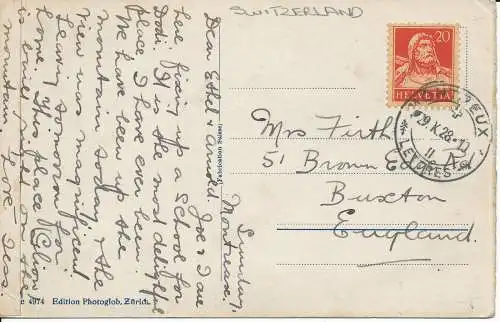 SWITZERLAND
Sunday,
Montreux.
Dear Ethel & Arnold. Joe & I are
here fixing up a School for
Dodi. It is the most delightful
place I have ever been.
We have been up the
mountain so day & the
View was magnificent
Leaving tomorrow for
home. This place (Clion)
is built right on the
mountain. Love, Jess.
Fabrication Suisse
4974 Edition Photoglob, Zürich.
20
HELVETIA
MONTREUX
29.X.28.-11
Mrs Firth
51 Brown
Buxton
England.